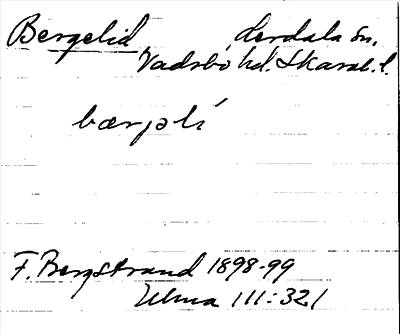 Bergelid Lerdala sn,
Vadsbo hd. Skarab. l.
bærjəlí
F. Bergstrand 1898-99
Ulma 111:321